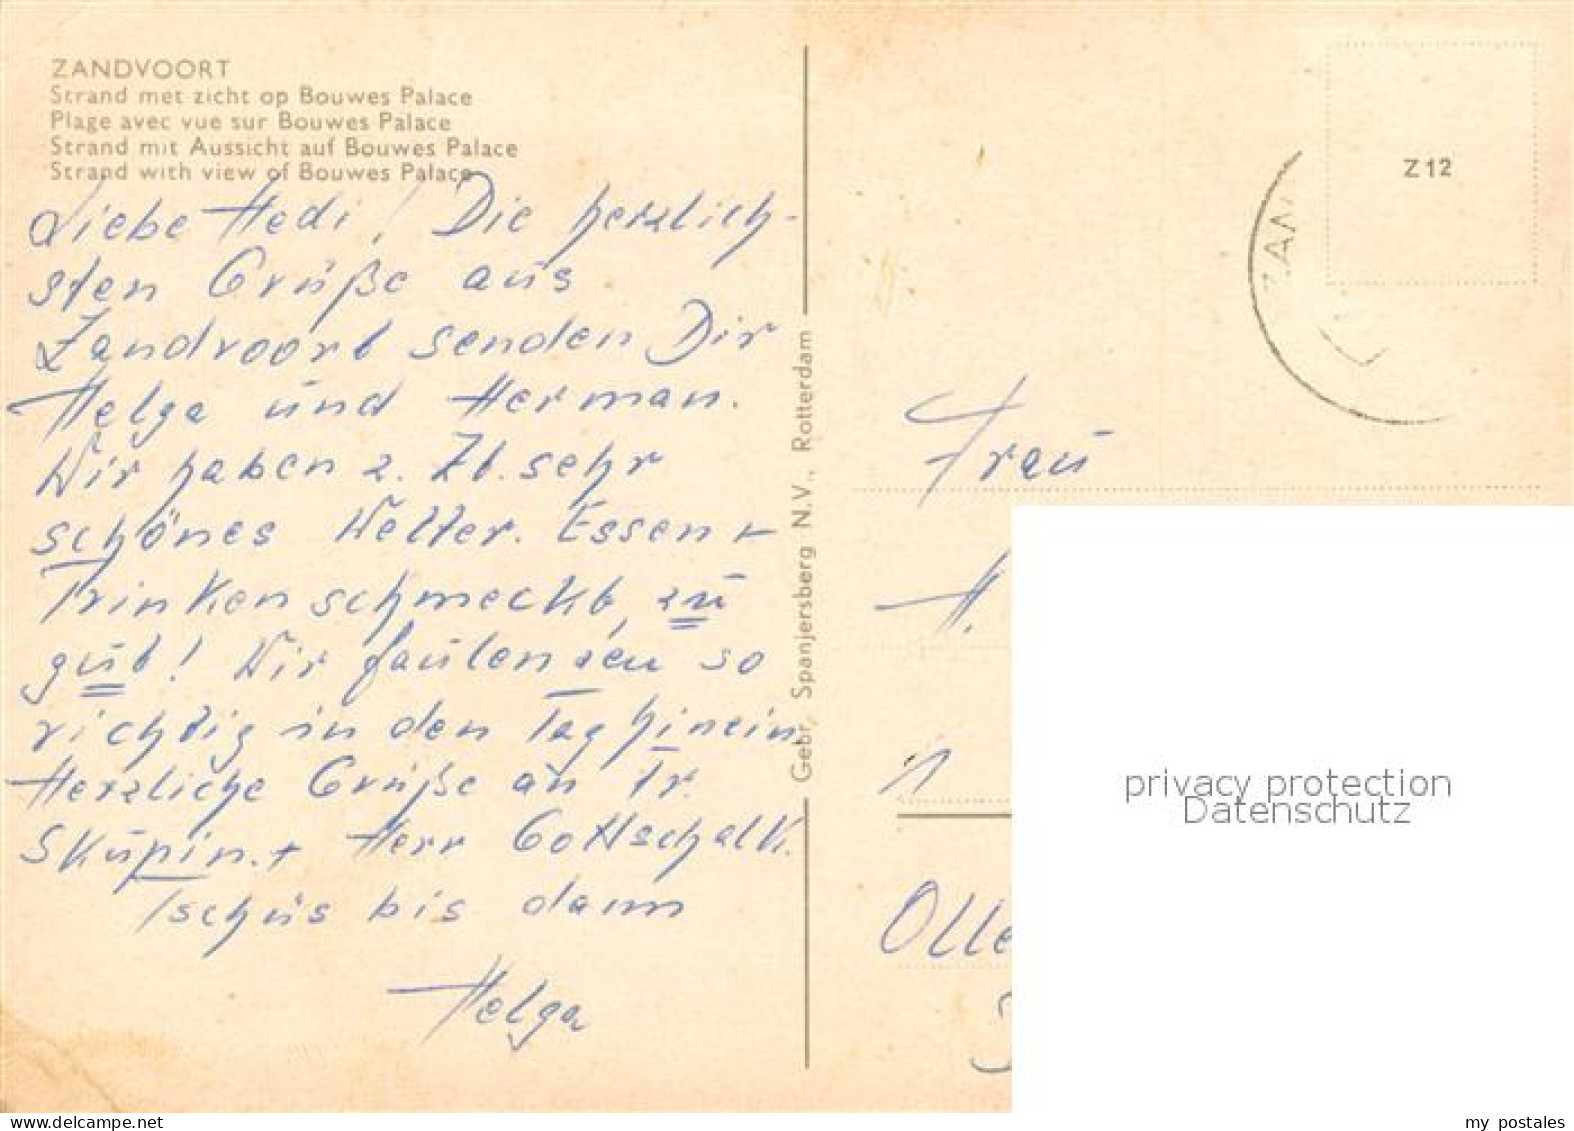 ZANDVOORT
Strand met zicht op Bouwes Palace
Plage avec vue sur Bouwes Palace
Strand mit Aussicht auf Bouwes Palace
Strand with view of Bouwes Palace
Liebe Hedi! Die herzlich-
sten Grüße aus
Zandvoort senden Dir
Helga und Herman.
Wir haben z. Zt. sehr
schönes Wetter. Essen +
Trinken schmeckt, zu
gut! Wir faulenzen so
richtig in den Tag hinein
Herzliche Grüße an Fr.
Skupin. + Herr Gottschalk.
Tschüs bis dann
Helga
Gebr. Spanjersberg N.V., Rotterdam
Z12
ZAN
Frau
H.
1
Olle
privacy protection
Datenschutz
delcampe.net
my_postales